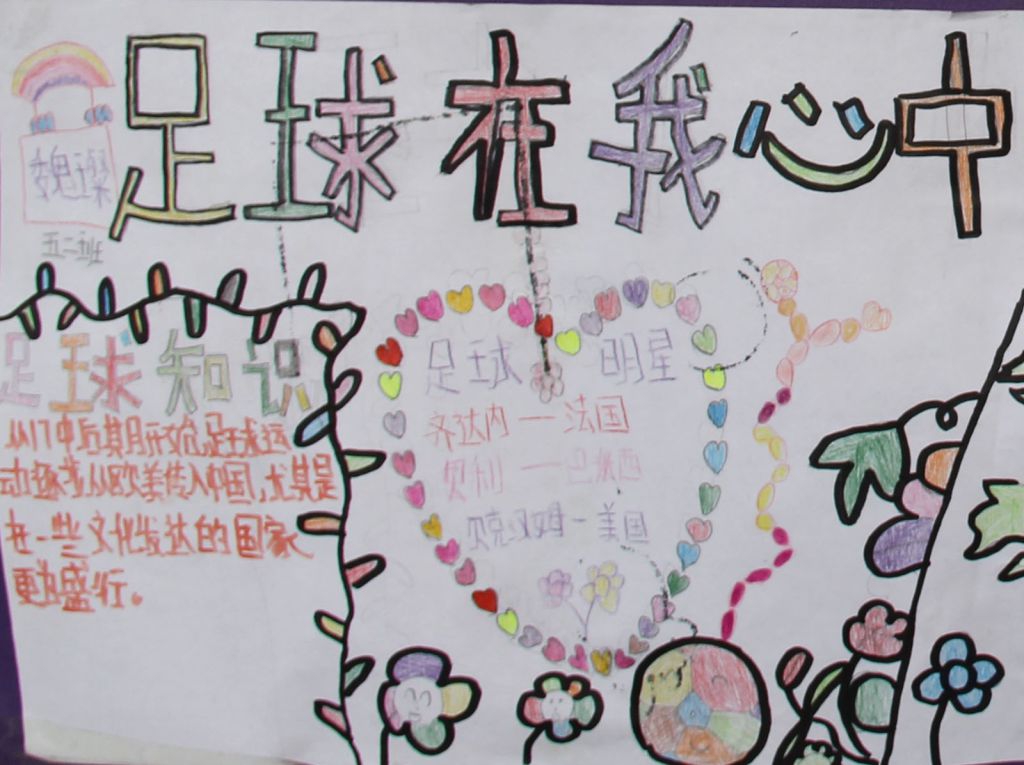 足球在我心中
魏璨
五二班
足球知识
从17中后其月开始,足球运
动逐步从欧美传入中国,尤其是
在一些文化发达的国家
更为盛行。
足球 明星
齐达内一法国
贝利 一巴西
贝克汉姆-美国